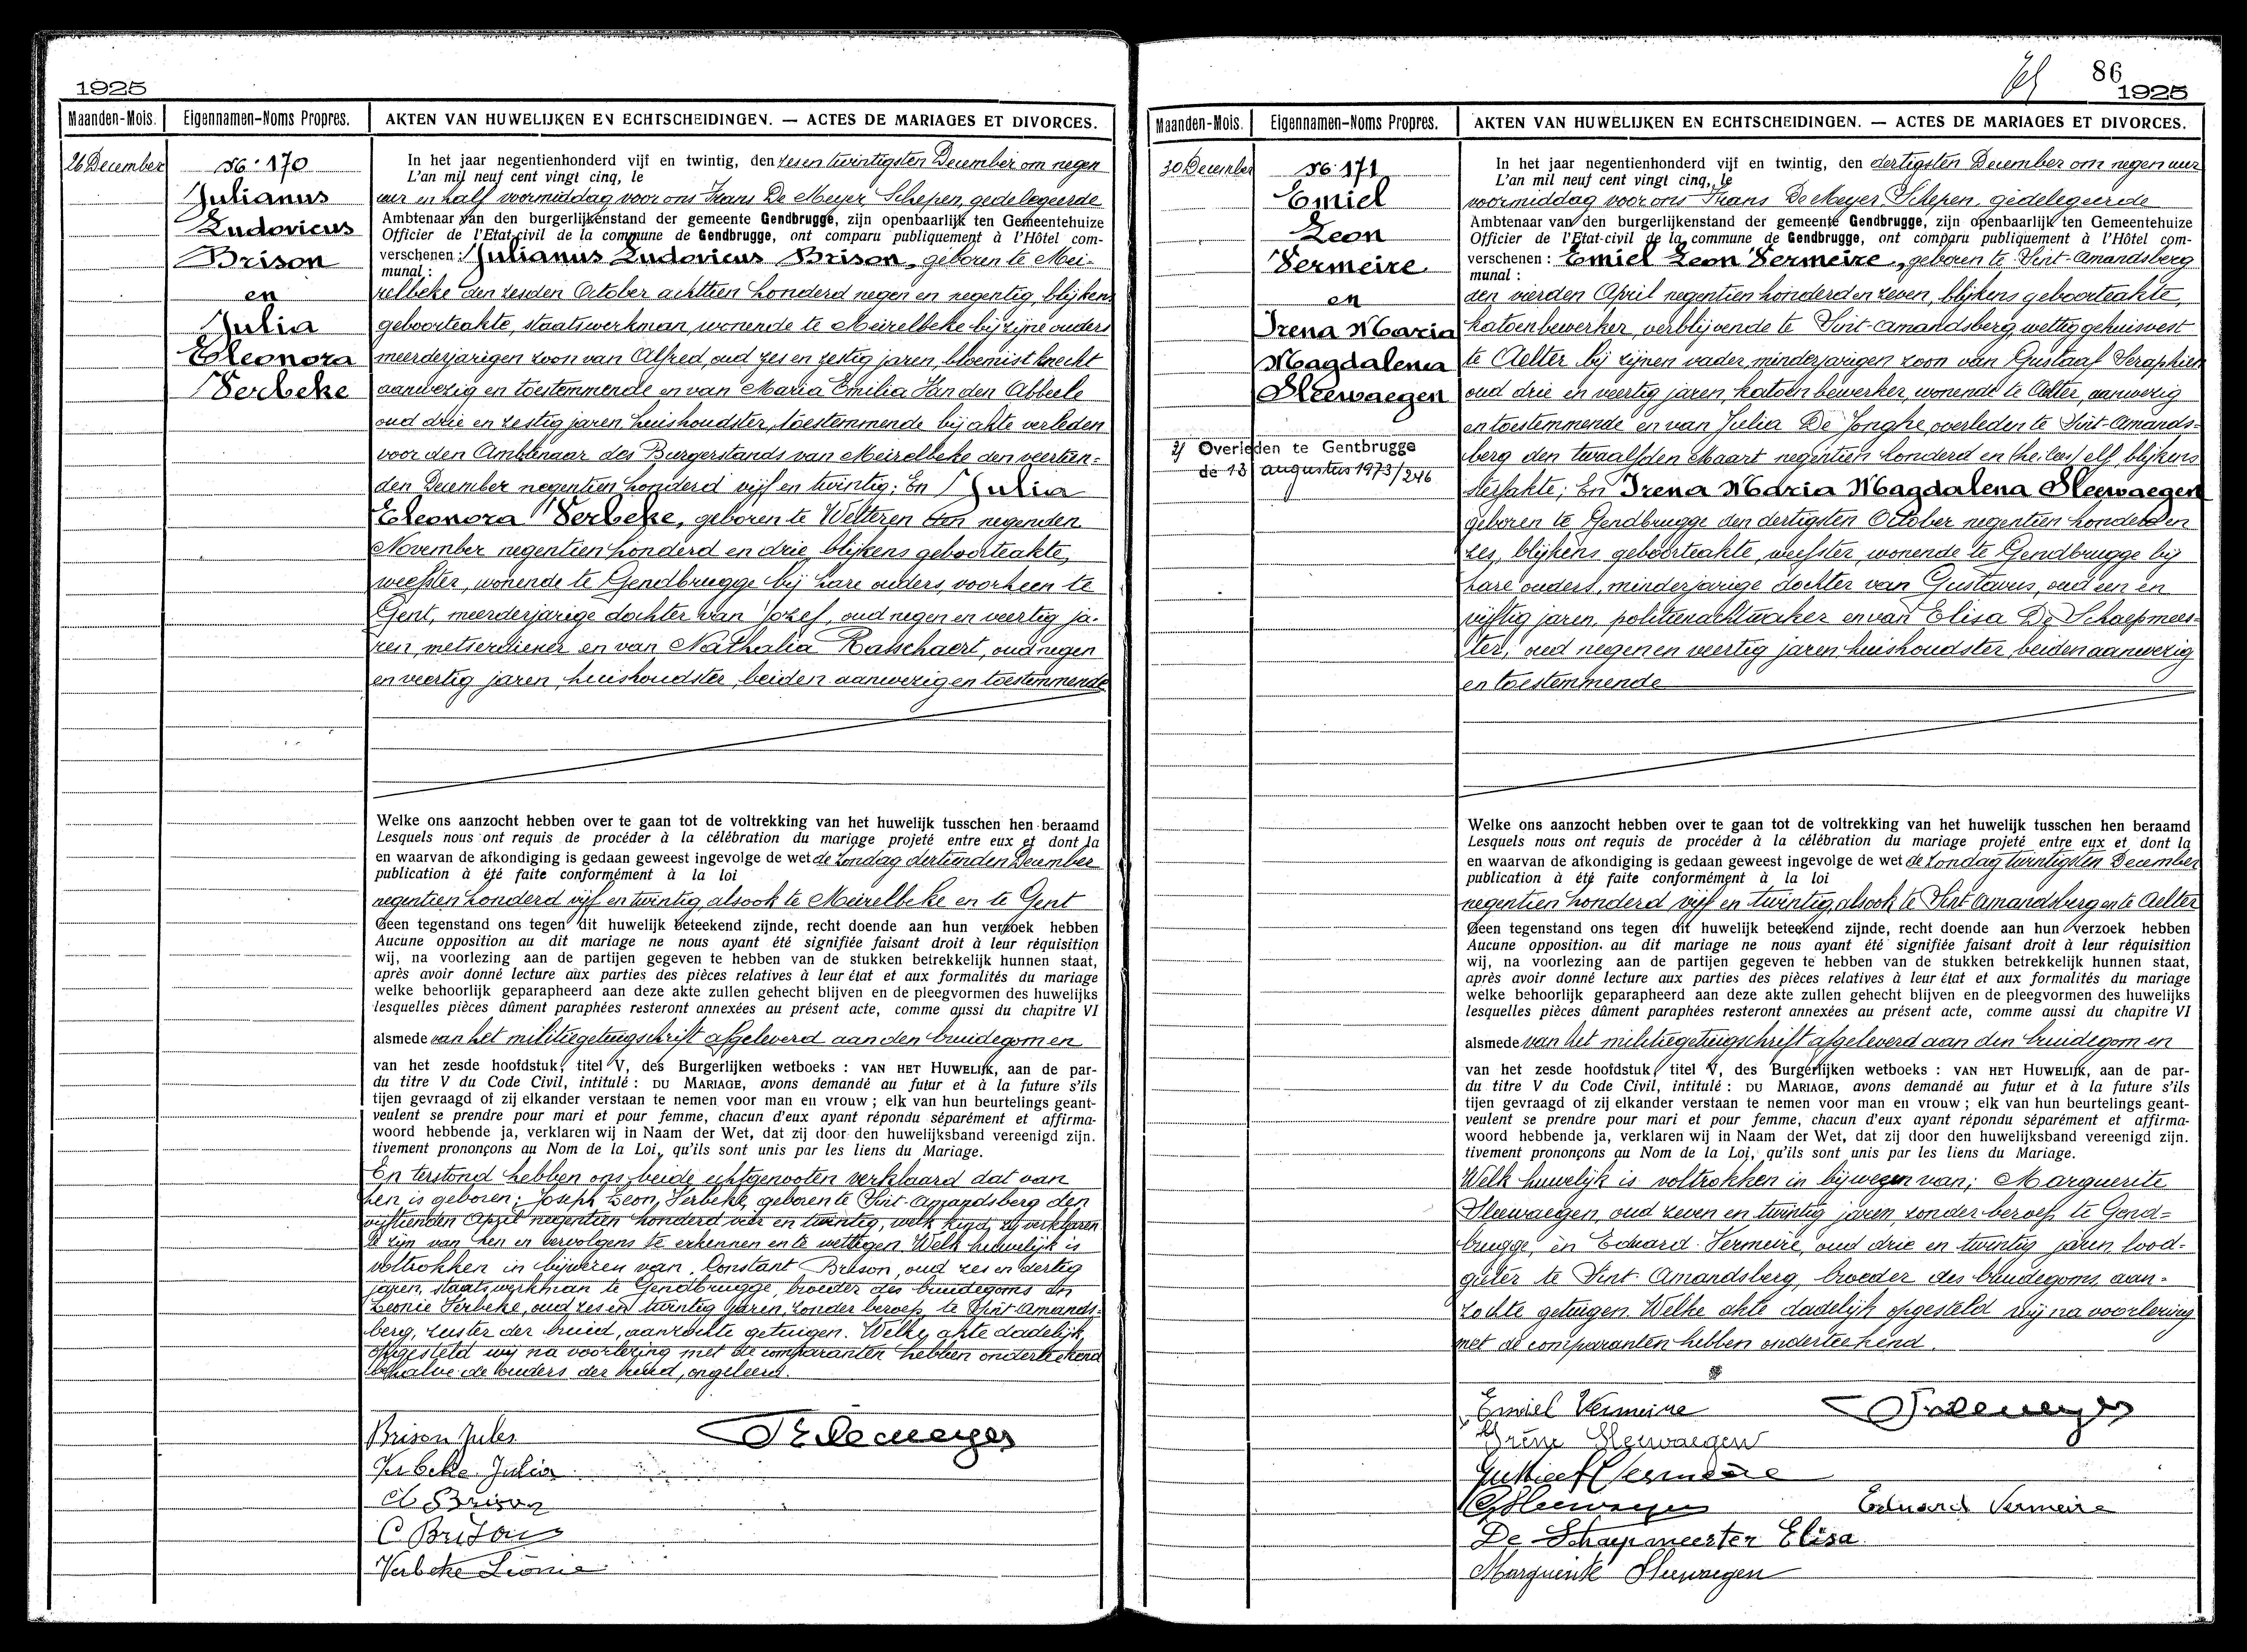 1925
Maanden-Mois. Eigennamen-Noms Propres. AKTEN VAN HUWELIJKEN EN ECHTSCHEIDINGEN. — ACTES DE MARIAGES ET DIVORCES.
26 December
No 170
Julianus
Ludovicus
Brison
en
Julia
Eleonora
Verbeke
In het jaar negentienhonderd vijf en twintig, den zesentwintigsten December om negen
L'an mil neuf cent vingt cinq, le
uur en half voormiddag voor ons Frans De Meyer Schepen, gedelegeerde
Ambtenaar van den burgerlijkenstand der gemeente Gendbrugge, zijn openbaarlijk ten Gemeentehuize
Officier de l'Etat-civil de la commune de Gendbrugge, ont comparu publiquement à l'Hôtel com-
verschenen : Julianus Ludovicus Brison, geboren te Mei-
munal :
relbeke den zesden October achttien honderd negen en negentig, blijkens
geboorteakte, staatswerkman, wonende te Meirelbeke bij zijne ouders
meerderjarigen zoon van Alfred, oud zes en zestig jaren, bloemistknecht
aanwezig en toestemmende en van Maria Emilia Van den Abbeele
oud drie en zestig jaren, huishoudster, toestemmende bij akte verleden
voor den Ambtenaar des Burgerstands van Meirelbeke den veertien-
den December negentien honderd vijf en twintig; En Julia
Eleonora Verbeke, geboren te Wetteren den negenden
November negentien honderd en drie, blijkens geboorteakte,
weefster, wonende te Gendbrugge bij hare ouders, voorheen te
Gent, meerderjarige dochter van Jozef, oud negen en veertig ja-
ren, metserdiener en van Nathalia Rasschaert, oud negen
en veertig jaren, huishoudster, beiden aanwezig en toestemmende
Welke ons aanzocht hebben over te gaan tot de voltrekking van het huwelijk tusschen hen beraamd
Lesquels nous ont requis de procéder à la célébration du mariage projeté entre eux et dont la
en waarvan de afkondiging is gedaan geweest ingevolge de wet de zondag dertienden December
publication à été faite conformément à la loi
negentien honderd vijf en twintig, alsook te Meirelbeke en te Gent
Geen tegenstand ons tegen dit huwelijk beteekend zijnde, recht doende aan hun verzoek hebben
Aucune opposition au dit mariage ne nous ayant été signifiée faisant droit à leur réquisition
wij, na voorlezing aan de partijen gegeven te hebben van de stukken betrekkelijk hunnen staat,
après avoir donné lecture aux parties des pièces relatives à leur état et aux formalités du mariage
welke behoorlijk geparapheerd aan deze akte zullen gehecht blijven en de pleegvormen des huwelijks
lesquelles pièces dûment paraphées resteront annexées au présent acte, comme aussi du chapitre VI
alsmede van het militiegetuigschrift afgeleverd aan den bruidegom en
van het zesde hoofdstuk, titel V, des Burgerlijken wetboeks : VAN HET HUWELIJK, aan de par-
du titre V du Code Civil, intitulé : DU MARIAGE, avons demandé au futur et à la future s'ils
tijen gevraagd of zij elkander verstaan te nemen voor man en vrouw ; elk van hun beurtelings geant-
veulent se prendre pour mari et pour femme, chacun d'eux ayant répondu séparément et affirma-
woord hebbende ja, verklaren wij in Naam der Wet, dat zij door den huwelijksband vereenigd zijn.
tivement prononçons au Nom de la Loi, qu'ils sont unis par les liens du Mariage.
En terstond hebben ons beide echtgenooten verklaard dat van
hen is geboren: Joseph Leon, Verbeke, geboren te Sint-Amandsberg den
vijftienden April negentien honderd vier en twintig, welk kind zij verklaren
te zijn van hen en vervolgens te erkennen en te wettigen. Welk huwelijk is
voltrokken in bijwezen van: Constant Brison, oud zes en dertig
jaren, staatswerkman te Gendbrugge, broeder des bruidegoms en
Leonie Verbeke, oud zes en twintig jaren, zonder beroep, te Sint-Amands-
berg, zuster der bruid, aanzochte getuigen. Welke akte dadelijk
opgesteld wij na voorlezing met de comparanten hebben onderteekend
behalve de ouders der bruid, ongeleerd.
Brison Jules
Verbeke Julia
A Brison
C Brison
Verbeke Léonie
86
1925
Maanden-Mois. Eigennamen-Noms Propres. AKTEN VAN HUWELIJKEN EN ECHTSCHEIDINGEN. — ACTES DE MARIAGES ET DIVORCES.
30 December
No 171
Emiel
Leon
Vermeire
en
Irena Maria
Magdalena
Sleewaegen
2) Overleden te Gentbrugge
de 13 augustus 1973/246
In het jaar negentienhonderd vijf en twintig, den dertigsten December om negen uur
L'an mil neuf cent vingt cinq, le
voormiddag voor ons Frans De Meyer Schepen, gedelegeerde
Ambtenaar van den burgerlijkenstand der gemeente Gendbrugge, zijn openbaarlijk ten Gemeentehuize
Officier de l'Etat-civil de la commune de Gendbrugge, ont comparu publiquement à l'Hôtel com-
verschenen : Emiel Leon Vermeire, geboren te Sint-Amandsberg
munal :
den vierden April negentien honderd en zeven, blijkens geboorteakte,
katoenbewerker, verblijvende te Sint-Amandsberg, wettig gehuisvest
te Aelter bij zijnen vader, minderjarigen zoon van Gustaaf Seraphien
oud drie en veertig jaren, katoenbewerker, wonende te Aelter, aanwezig
en toestemmende en van Julia De Jonghe, overleden te Sint-Amands-
berg den twaalfden Maart negentien honderd en elf, blijkens
sterfakte; En Irena Maria Magdalena Sleewaegen
geboren te Gendbrugge den dertigsten October negentien honderd en
zes, blijkens geboorteakte, weefster, wonende te Gendbrugge bij
hare ouders, minderjarige dochter van Gustavus, oud een en
vijftig jaren, politienachtwaker en van Elisa De Schaepmees-
ter, oud negen en veertig jaren, huishoudster, beiden aanwezig
en toestemmende
Welke ons aanzocht hebben over te gaan tot de voltrekking van het huwelijk tusschen hen beraamd
Lesquels nous ont requis de procéder à la célébration du mariage projeté entre eux et dont la
en waarvan de afkondiging is gedaan geweest ingevolge de wet de zondag twintigsten December
publication à été faite conformément à la loi
negentien honderd vijf en twintig, alsook te Sint Amandsberg en te Aelter
Geen tegenstand ons tegen dit huwelijk beteekend zijnde, recht doende aan hun verzoek hebben
Aucune opposition au dit mariage ne nous ayant été signifiée faisant droit à leur réquisition
wij, na voorlezing aan de partijen gegeven te hebben van de stukken betrekkelijk hunnen staat,
après avoir donné lecture aux parties des pièces relatives à leur état et aux formalités du mariage
welke behoorlijk geparapheerd aan deze akte zullen gehecht blijven en de pleegvormen des huwelijks
lesquelles pièces dûment paraphées resteront annexées au présent acte, comme aussi du chapitre VI
alsmede van het militiegetuigschrift afgeleverd aan den bruidegom en
van het zesde hoofdstuk, titel V, des Burgerlijken wetboeks : VAN HET HUWELIJK, aan de par-
du titre V du Code Civil, intitulé : DU MARIAGE, avons demandé au futur et à la future s'ils
tijen gevraagd of zij elkander verstaan te nemen voor man en vrouw ; elk van hun beurtelings geant-
veulent se prendre pour mari et pour femme, chacun d'eux ayant répondu séparément et affirma-
woord hebbende ja, verklaren wij in Naam der Wet, dat zij door den huwelijksband vereenigd zijn.
tivement prononçons au Nom de la Loi, qu'ils sont unis par les liens du Mariage.
Welk huwelijk is voltrokken in bijwezen van: Marguerite
Sleewaegen, oud zeven en twintig jaren, zonder beroep te Gend-
brugge, en Eduard Vermeire, oud drie en twintig jaren, lood-
gieter te Sint-Amandsberg, broeder des bruidegoms, aan-
zochte getuigen. Welke akte dadelijk opgesteld wij na voorlezing
met de comparanten hebben onderteekend.
Emiel Vermeire
Irène Sleewaegen
Gustaaf Vermeire
G Sleewaegen Eduard Vermeire
De Schaepmeester Elisa
Marguerite Sleewaegen